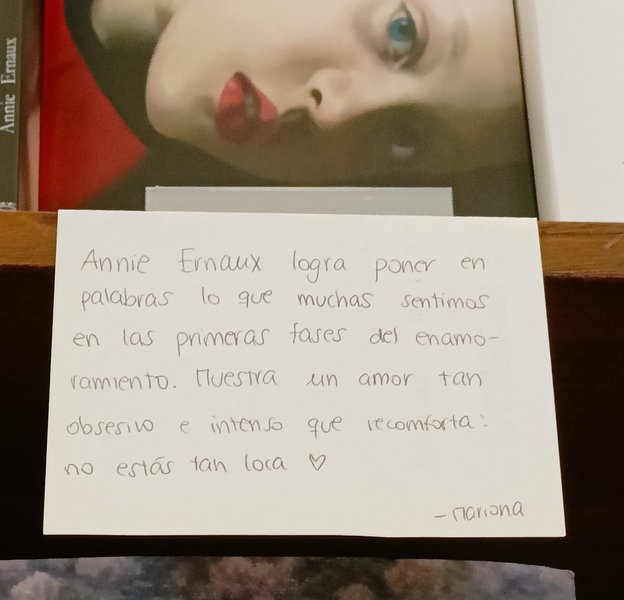 Annie Ernaux
Annie Ernaux logra poner en
palabras lo que muchas sentimos
en las primeras fases del enamo-
ramiento. Muestra un amor tan
obsesivo e intenso que recomforta:
no estás tan loca ♡
- Mariona